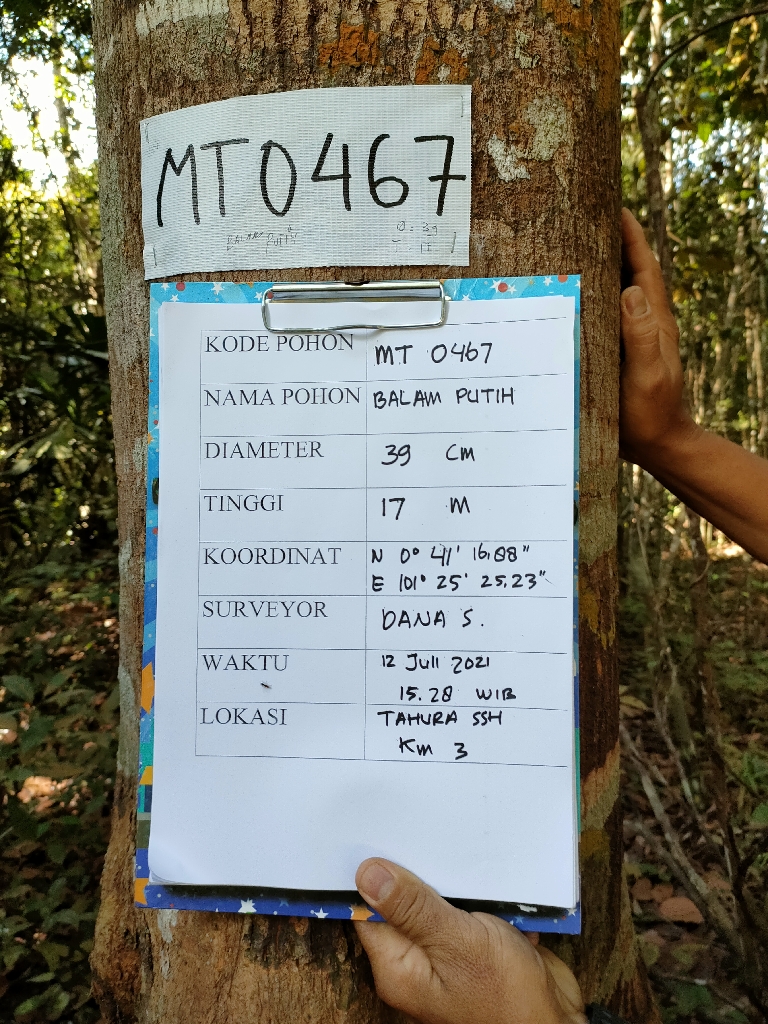 MT0467
BALAM PUTIH
Ø = 39
17
KODE POHON MT 0467
NAMA POHON BALAM PUTIH
DIAMETER 39 CM
TINGGI 17 M
KOORDINAT N 0° 41' 16,88"
E 101° 25' 25,23"
SURVEYOR DANA S.
WAKTU 12 Juli 2021
15.28 WIB
LOKASI TAHURA SSH
Km 3